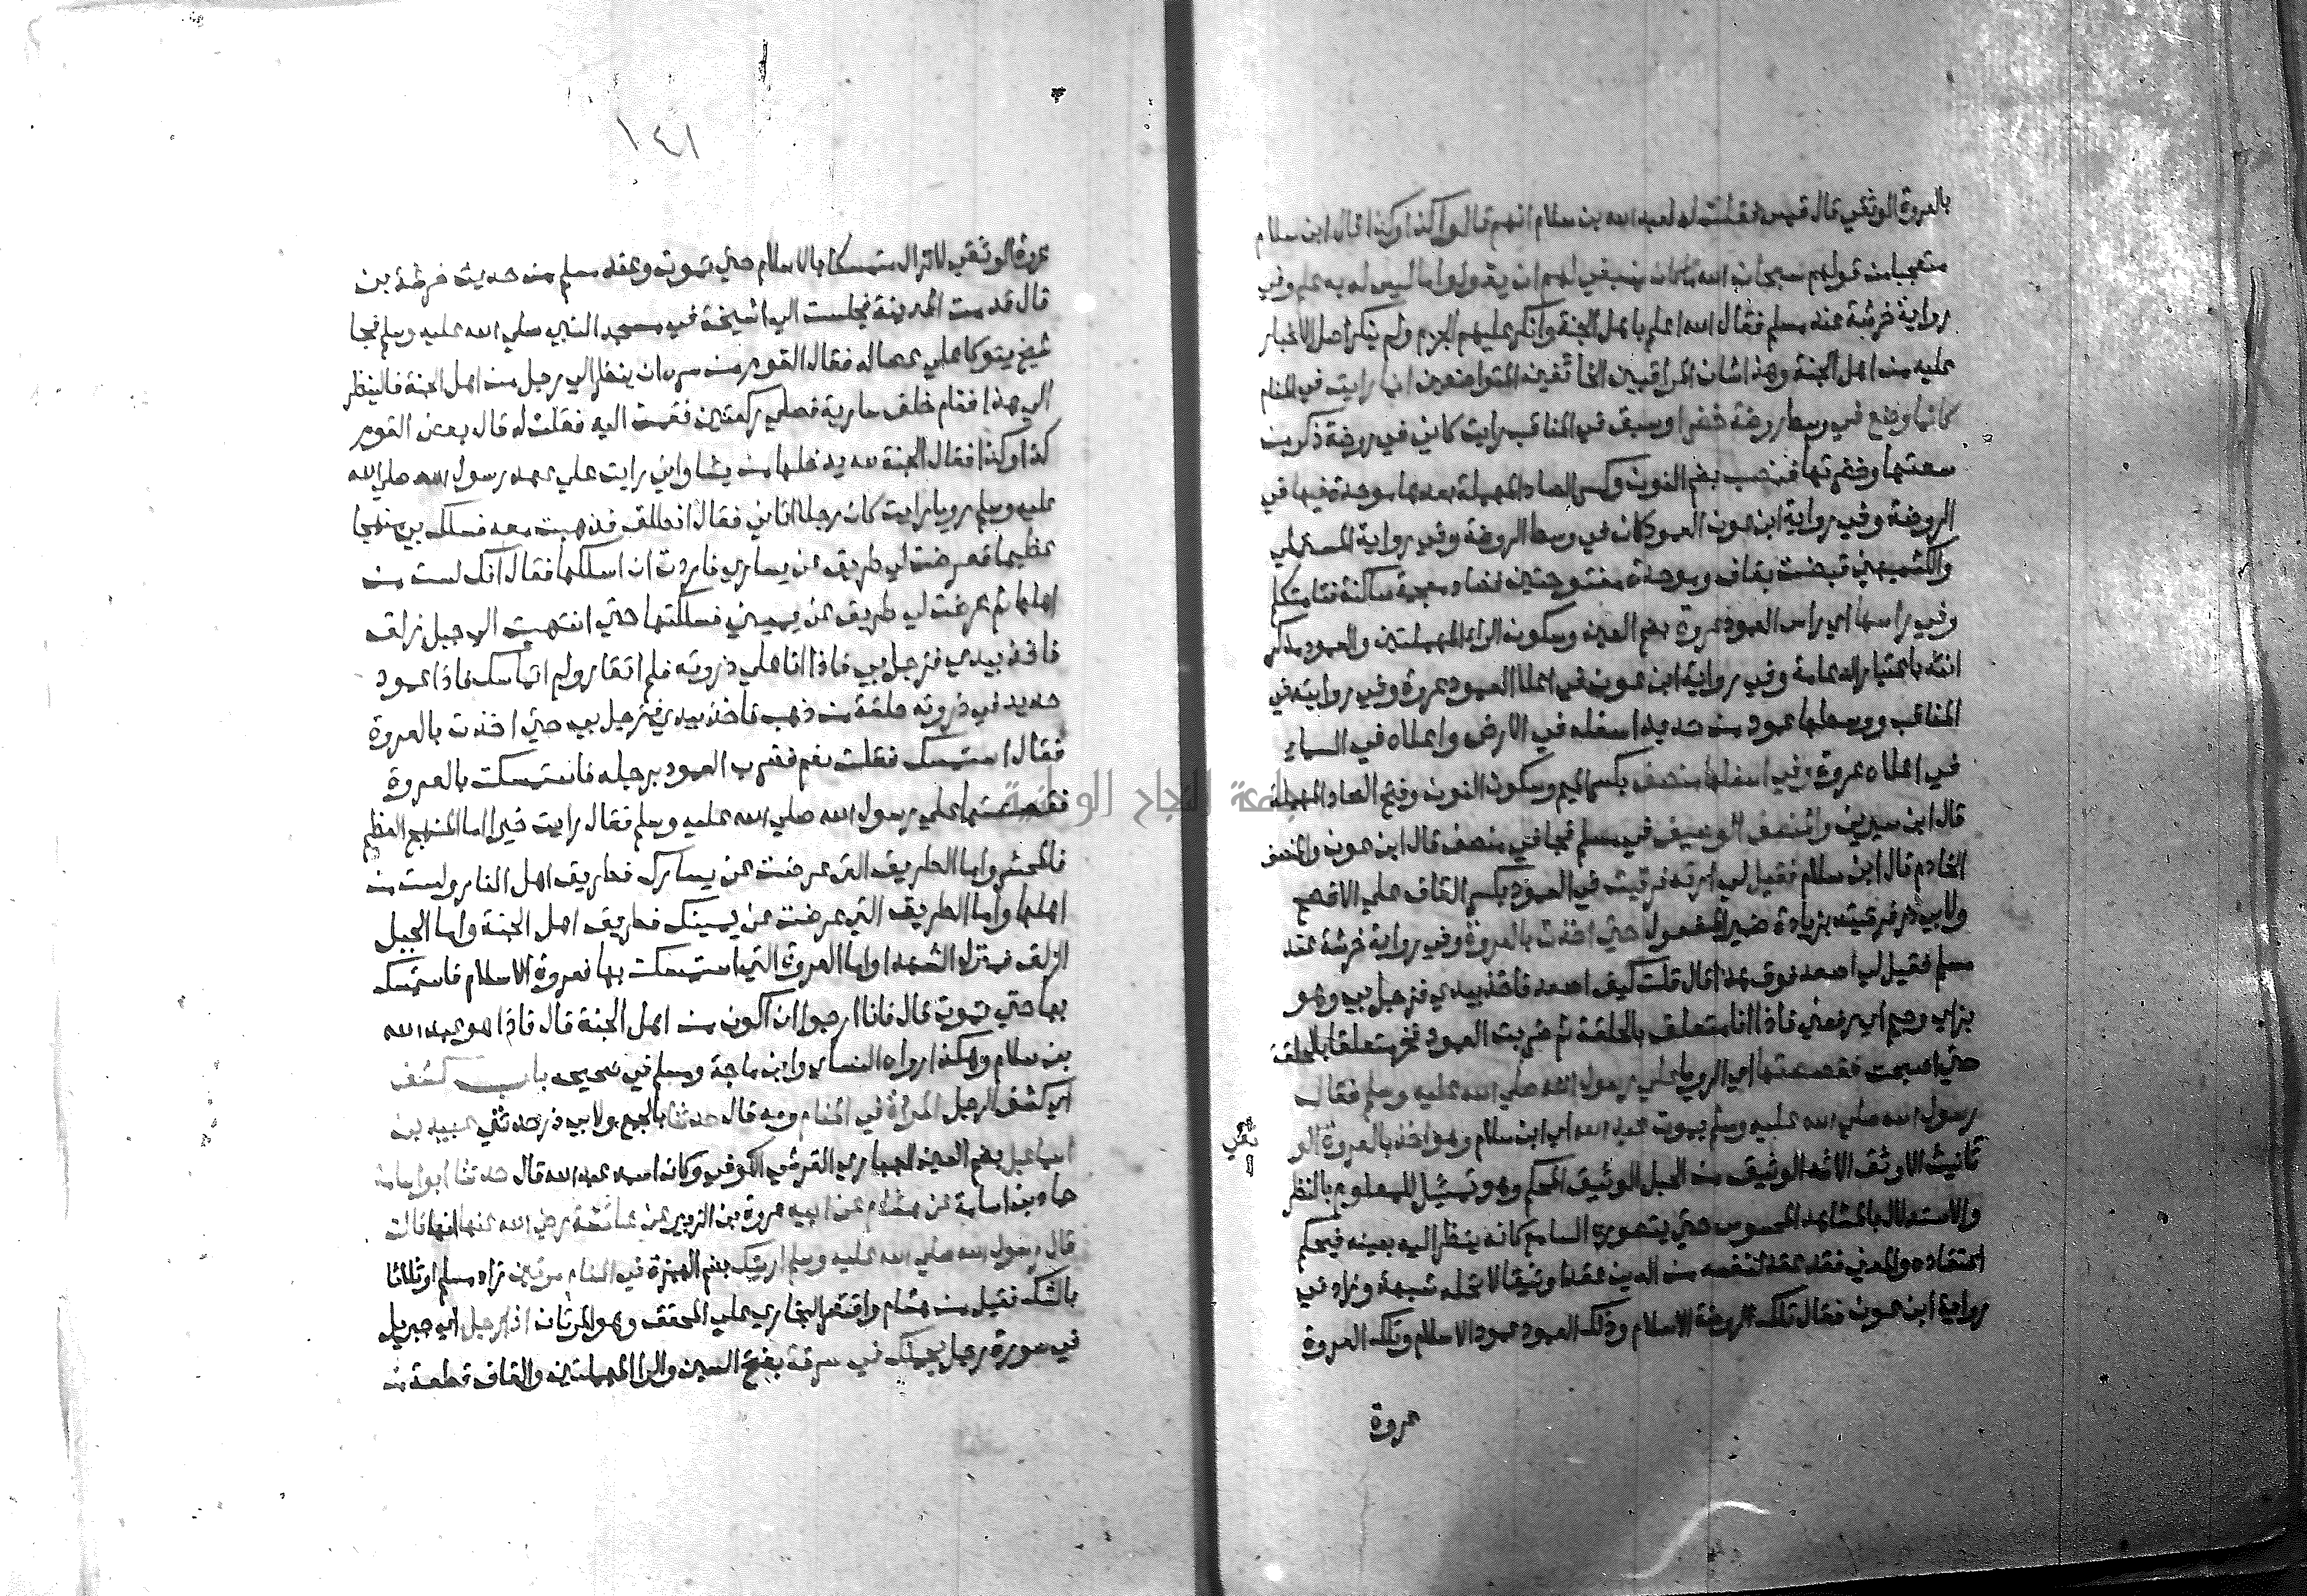 بالعروة الوثقي قال قيس فقلت له لعبد الله بن سلام انهم قالوا كذا وكذا قال ابن سلام
متعجبا من قولهم سبحان الله ما كان ينبغي لهم ان يقولوا ما ليس له به علم وفي
رواية خرشة عند مسلم فقال الله اعلم باهل الجنة وانكر عليهم الجزم ولم ينكر اصل الاخبار
عليه من اهل الجنة وهذا شان المراقبين الخائفين المتواضعين انما رايت في المنام
كانما وضع في وسط روضة خضرا وسبق في المناقب رايت كاني في روضة ذكر من
سعتها وخضرتها فنصب بضم النون وكسر الصاد المهملة بعدها موحدة فيها في
الروضة وفي رواية ابن عون العمود كان في وسط الروضة وفي رواية المستملي
والكشميهني قبضت بقاف وموحدة مفتوحتين فضاد معجمة ساكنة فتا متكلم
وفي راسها اي راس العمود عروة بضم العين وسكون الراء المهملتين والعمود مذكر
انثه باعتبار الدعامة وفي رواية ابن عون في اعلا العمود عروة وفي روايته في
المناقب ووسطها عمود من حديد اسفله في الارض واعلاه في السماء
في اعلاه عروة وفي اسفلها منصف بكسر الميم وسكون النون وفتح الصاد المهملة
قال ابن سيرين والمنصف الوصيف في مسلم فجا في منصف قال ابن عون والمنصف
الخادم قال ابن سلام فقيل لي ارقه فرقيت في العمود بكسر القاف علي الافصح
ولابي ذر فرقيته بزيادة ضمير المفعول حتي اخذت بالعروة وفي رواية خرشة عند
مسلم فقيل لي اصعد فوق هذا قال قلت كيف اصعد فاخذ بيدي فزجل بي وهو
بزاي وجيم اي رفعني فاذا انا متعلق بالحلقة ثم ضربت العمود فخر متعلقا بالحلقة
حتي اصبحت فقصصتها اي الرويا علي رسول الله صلي الله عليه وسلم فقال
رسول الله صلي الله عليه وسلم يموت عبد الله اي ابن سلام وهو اخذ بالعروة الو
ثقي
تانيث الاوثق الاشد الوثيق من الحبل الوثيق المحكم وهو تمثيل للمعلوم بالنظر
والاستدلال بالمشاهد المحسوس حتي يتصوره السامع كانه ينظر اليه بعينه فيحكم
اعتقاده والمعني فقد عقد لنفسه من الدين عقدا وثيقا لا تحله شبهة وزاد في
رواية ابن عون فقال تلك الروضة الاسلام وذلك العمود عمود الاسلام وتلك العروة
عروة
١٤١
عروة الوثقي لا تزال متمسكا بالاسلام حتي تموت وعند مسلم من حديث خرشة بن
قال قدمت المدينة فجلست الي اشيخة في مسجد النبي صلي الله عليه وسلم فجا
شيخ يتوكا علي عصا له فقال القوم من سره ان ينظر الي رجل من اهل الجنة فالينظر
الي هذا فقام خلف سارية فصلي ركعتين فقمت اليه فقلت له قال بعض القوم
كذا وكذا فقال الجنة لله يدخلها من يشا واني رايت علي عهد رسول الله صلي الله
عليه وسلم رويا رايت كان رجلا اتاني فقال انطلق فذهبت معه فسلك بي منهجا
عظيما فعرضت لي طريق عن يساري فاردت ان اسلكها فقال انك لست من
اهلها ثم عرضت لي طريق عن يميني فسلكتها حتي انتهيت الي جبل زلق
فاخذ بيدي فزجل بي فاذا انا علي ذروته فلم اتقار ولم اتماسك فاذا عمود
حديد في ذروته حلقة من ذهب فاخذ بيدي فزجل بي حتي اخذت بالعروة
فقال استمسك فقلت نعم فضرب العمود برجله فاستمسكت بالعروة
فقصصتها علي رسول الله صلي الله عليه وسلم فقال رايت خيرا اما المنهج العظيم
فالمحشر واما الطريق التي عرضت عن يسارك فطريق اهل النار ولست من
اهلها واما الطريق التي عرضت عن يمينك فطريق اهل الجنة واما الجبل
الزلق فمنزل الشهدا واما العروة التي استمسكت بها فعروة الاسلام فاستمسك
بها حتي تموت قال فانا ارجوا ان اكون من اهل الجنة قال فاذا هو عبد الله
بن سلام وهكذا رواه النساي وابن ماجة ومسلم في صحيحه باب كشف
اي كشف الرجل المراة في المنام وبه قال حدثنا بالجمع ولابي ذر حدثني عبيد بن
اسماعيل بضم العين الهباري القرشي الكوفي وكان اسمه عبد الله قال حدثنا ابو اسامة
حماد بن اسامة عن هشام عن ابيه عروة بن الزبير عن عائشة رضي الله عنها انها قالت
قال رسول الله صلي الله عليه وسلم اريتك بضم الهمزة في المنام مرتين زاد مسلم او ثلاثا
بالشك فقيل من هشام واقتصر البخاري علي المحقق وهو المرتان اذا رجل اي جبريل
في صورة رجل يحملك في سرقة بفتح السين والرا المهملتين والقاف قطعة من